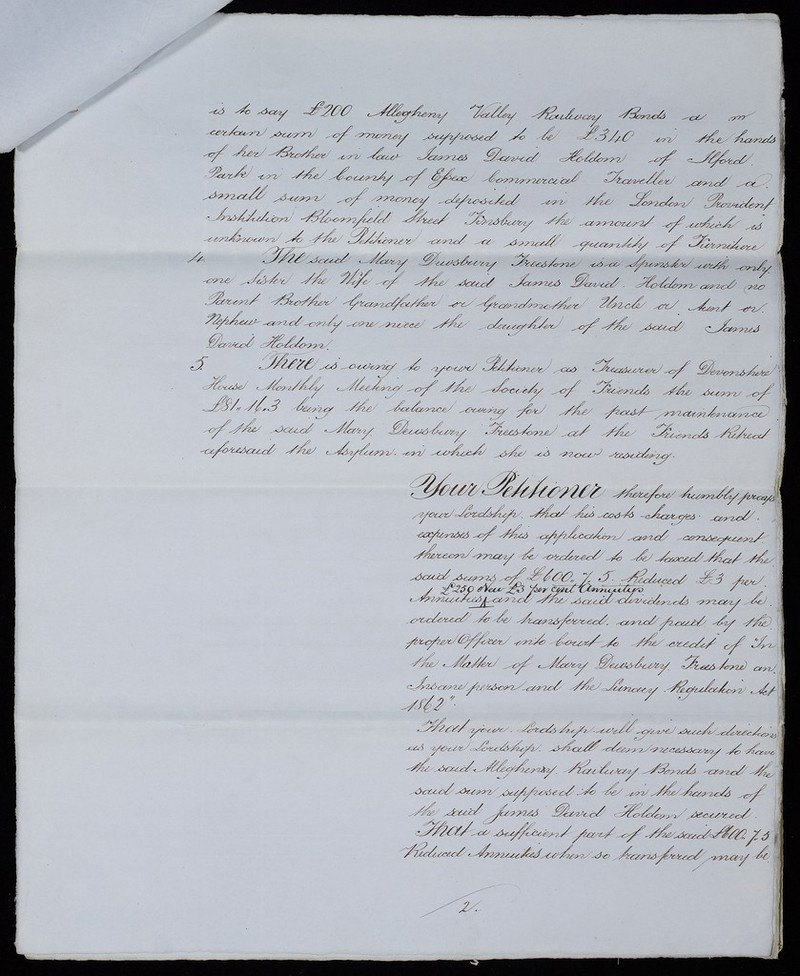 is to say £200 Allegheny Valley Railway Bonds a
certain sum of money supposed to be £340 in the hands
of her Brother in law James David Holdom of Ilford
Park in the County of Essex Commercial Traveller and a
small sum of money deposited in the London Provident
Institution Bloomfield Street Finsbury the amount of which is
unknown to the Petitioner and a small quantity of Furniture
4. The said Mary Dewsbury Freestone is a Spinster with only
one Sister the Wife of the said James David Holdom and no
Parent Brother Grandfather or Grandmother Uncle or Aunt or
Nephew and only one niece the daughter of the said James
David Holdom.
5. There is owing to your Petitioner as Treasurer of Devonshire
House Monthly Meeting of the Society of Friends the sum of
£81.16.3 being the balance owing for the past maintenance
of the said Mary Dewsbury Freestone at the Friends Retreat
aforesaid the Asylum in which she is now residing.
Your Petitioner therefore humbly prays
your Lordship that his costs charges and
expenses of this application and consequent
thereon may be ordered to be taxed that the
said sums of £600. 7. 5. Reduced £3 per
£250 New £3 per cent Annuities
Annuities and the said dividends may be
ordered to be transferred and paid by the
proper Officer into Court to the credit of "In
the Matter of Mary Dewsbury Freestone an
Insane person and the Lunacy Regulation Act
1862".
That your Lordship will give such directions
as your Lordship shall deem necessary to have
the said Allegheny Railway Bonds and the
said sum supposed to be in the hands of
the said James David Holdom secured.
That a sufficient part of the said £600. 7. 5
Reduced Annuities when so transferred may be
2.